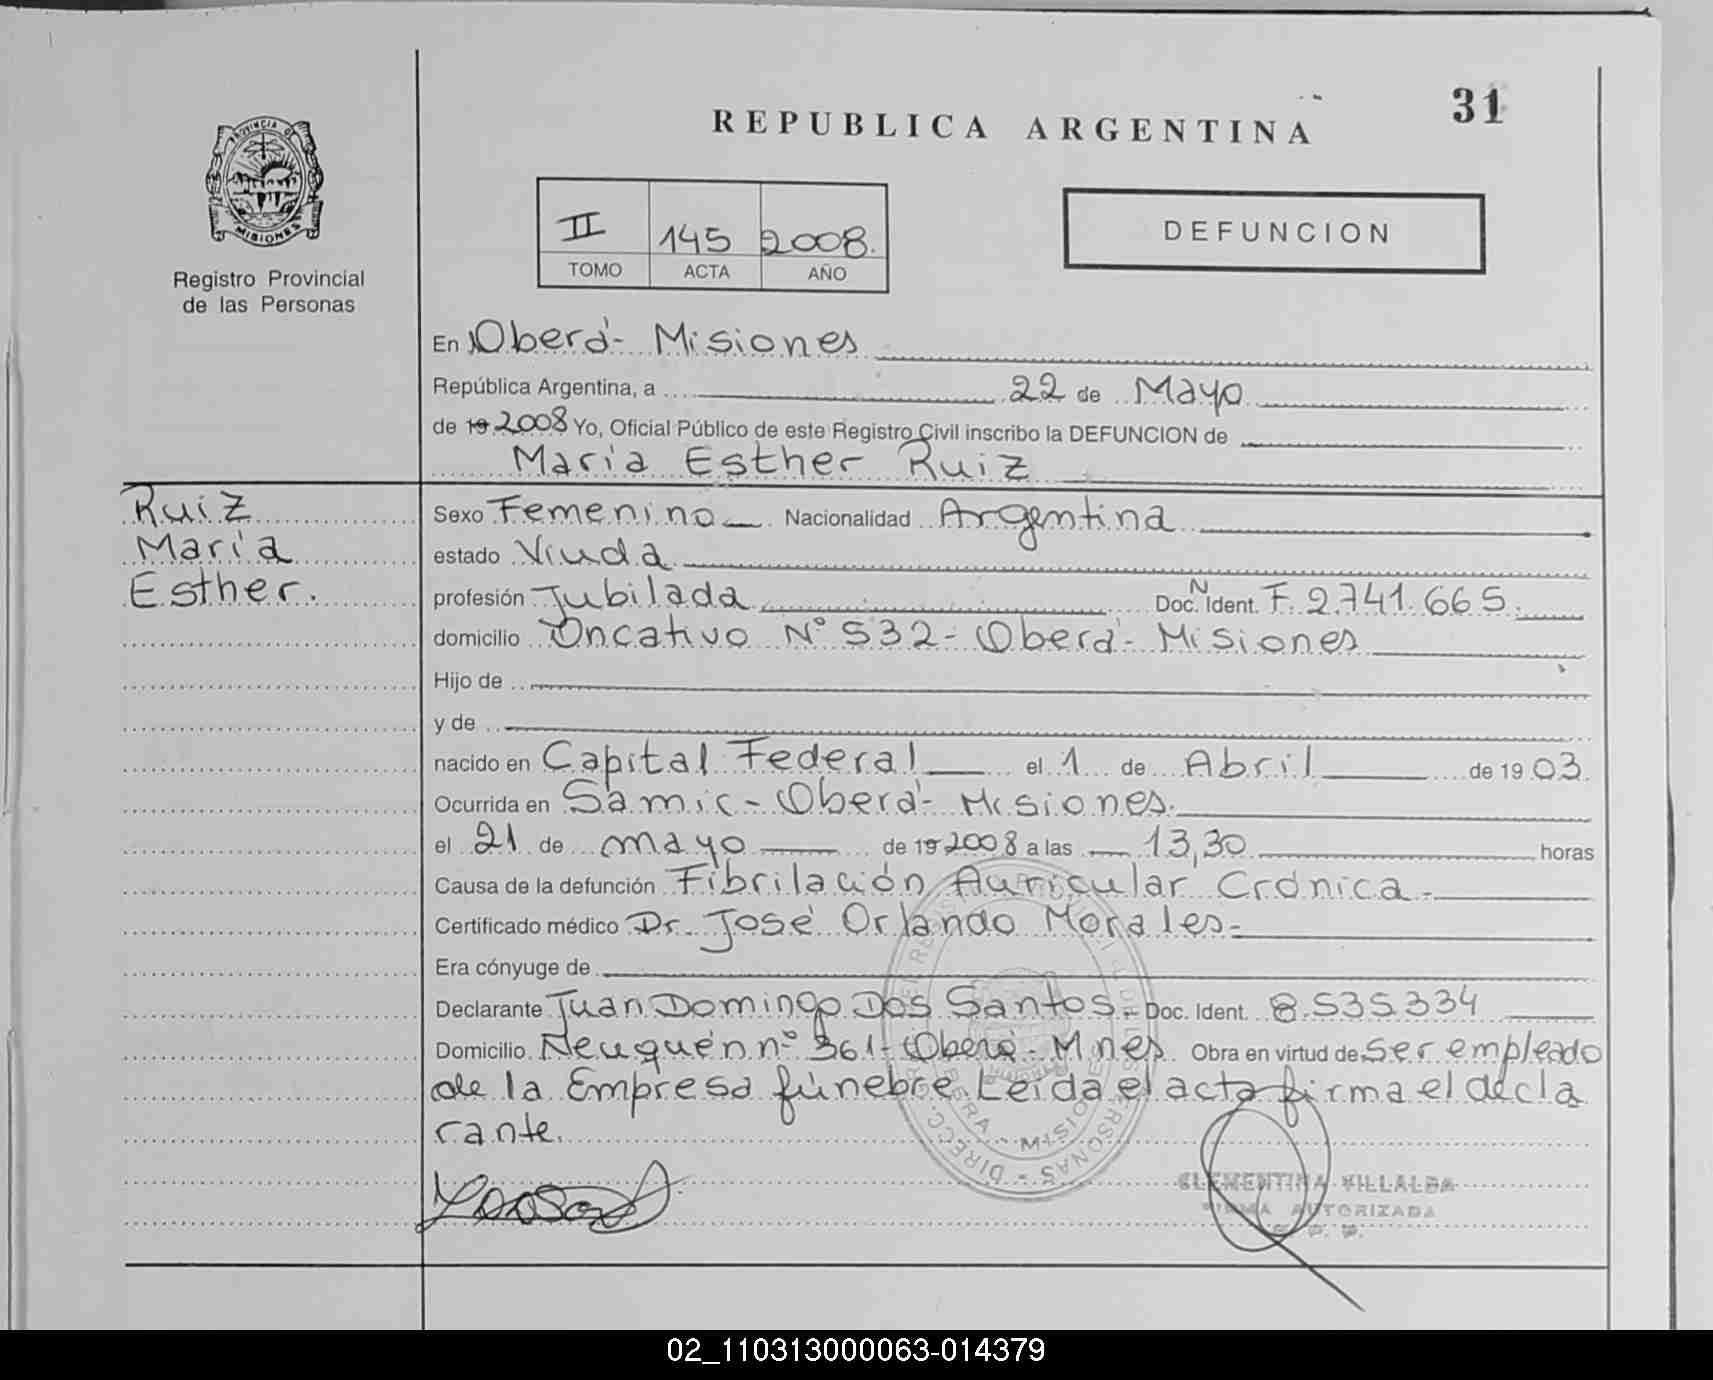 PROVINCIA DE
MISIONES
Registro Provincial
de las Personas
REPUBLICA ARGENTINA
31
II 145 2008.
TOMO ACTA AÑO
DEFUNCION
En Oberá - Misiones
República Argentina, a 22 de Mayo
de 19 2008 Yo, Oficial Público de este Registro Civil inscribo la DEFUNCION de
María Esther Ruiz
Ruiz
María
Esther.
Sexo Femenino Nacionalidad Argentina
estado Viuda
profesión Jubilada Doc. N Ident. F. 2.741.665.
domicilio Oncativo N° 532 - Oberá - Misiones
Hijo de
y de
nacido en Capital Federal el 1 de Abril de 19 03.
Ocurrida en Samic - Oberá - Misiones.
el 21 de mayo de 19 2008 a las 13,30 horas
Causa de la defunción Fibrilación Auricular Crónica.-
Certificado médico Dr. José Orlando Morales-
Era cónyuge de
Declarante Juan Domingo Dos Santos.- Doc. Ident. 8.535.334
Domicilio Neuquén n° 361 - Oberá - Mnes. Obra en virtud de ser empleado
de la Empresa fúnebre Leída el acta firma el decla
rante.
CLEMENTINA VILLALBA
FIRMA AUTORIZADA
02_110313000063-014379